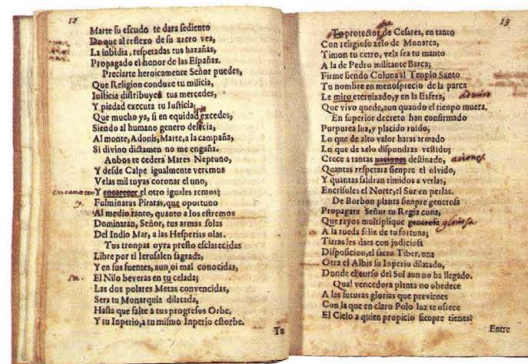 12
Marte su escudo te dara sediento
Do que al reflexo de su azero vea,
La inbidia, respetadas tus hazañas,
Propagado el honor de las Españas.
Preciarte heroicamente Señor puedes,
Que Religion conduze tu milicia,
Iusticia distribuye tus mercedes,
Y piedad executa tu Iusticia,
Que mucho ya, si en equidad excedes,
Siendo al humano genero delicia,
Al monte, Adonis, Marte, a la campaña,
Si divino dictamen no me engaña.
Anbos te cederá Mares Neptuno,
Y desde Calpe igualmente veremos
Velas mil tuyas coronar el uno,
Y encarecer el otro iguales remos;
Fulminaras Piratas, que oportuno
Al medio tanto, quanto a los estremos
Dominaran, Señor, tus armas solas
Del Indio Mar, a las Hesperias olas.
Tus tronpas oyra presto esclarecidas
Libre por ti Ierusalen sagrada,
Y en sus fuentes, aun oi mal conocidas,
El Nilo beveras en tu celada;
Las dos polares Metas convencidas,
Sera tu Monarquia dilatada,
Hasta que falte a tus progresos Orbe,
Y tu Inperio, a tu mismo Inperio estorbe.
Tu
13
protector de Cesares, en tanto
Con religioso zelo de Monarca,
Timon tu cetro, vela sea tu manto
A la de Pedro militante Barca;
Firme siendo Coluna al Templo Santo
Tu nombre en menosprecio de la parca
Le miro eternizado, y en la Esfera,
Que vivo quede, aun quando el tiempo muera.
En superior decreto han confirmado
Purpurea luz, y placido ruido,
Lo que de alto valor baras armado
Lo que de zelo dispondras vestido;
Crece a tantas naciones destinado,
Quantas respetará siempre el olvido,
Y quantas saldran timidos a verlas,
Encrisoles el Norte, el Sur en perlas.
De Borbon planta sienpre generosa
Propagara Señor tu Regia cuna,
Que rayos multiplique generosa gloriosa
A la rueda feliz de tu fortuna;
Tiaras les dara con judiciosa
Disposicion, el sacro Tiber, una
Otra el Albis su Inperio dilatado,
Donde el curso del Sol aun no ha llegado.
Qual vencedora planta no obedece
A las futuras glorias que previenes
Con la que en claro Polo luz te ofrece
El Cielo a quien propicio sienpre tienes?
Entre